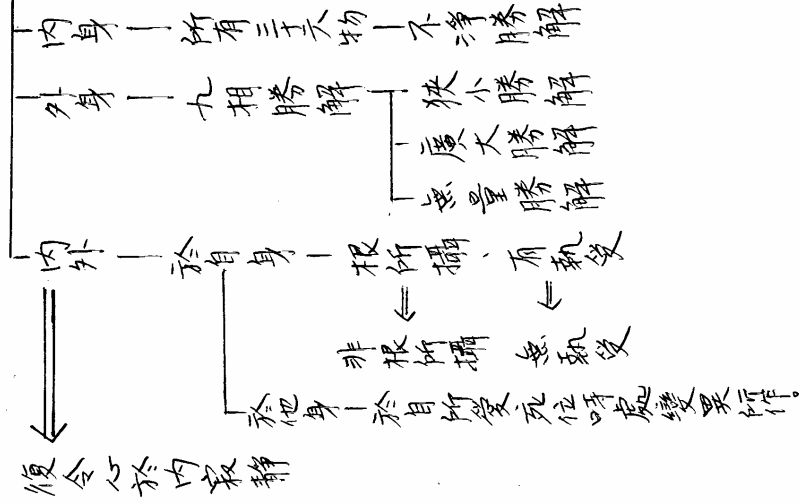 內身—所有三十六物—不淨勝解
外身—九相勝解—狹小勝解
廣大勝解
無量勝解
內外—於自身—根所攝、有執受
非根所攝 無執受
於他身—於自所愛死位時處變異所作。
復令心於內寂靜